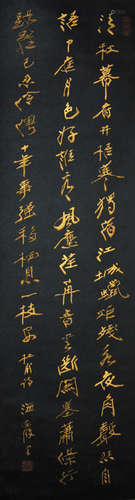 清秋幕府井梧寒獨宿江城蠟炬殘永夜角聲悲自
語中庭月色好誰看風塵荏苒音書斷關塞蕭條行
路難已忍伶俜十年事強移棲息一枝安 杜甫詩